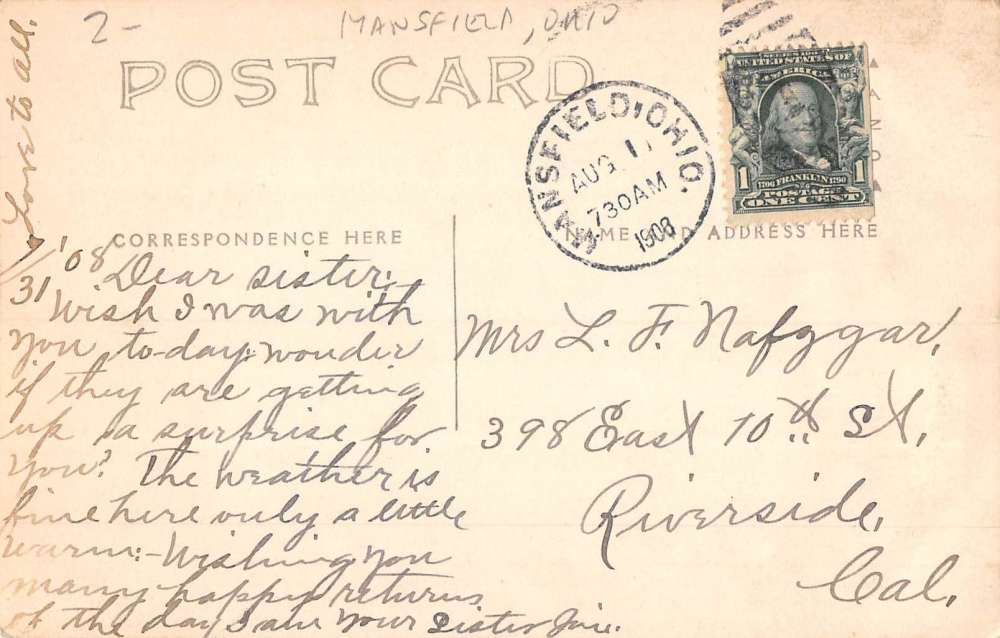 2-
MANSFIELD, OHIO
POST CARD
MANSFIELD, OHIO.
AUG 1
730 AM
1908
UNITED STATES OF
AMERICA
1706 FRANKLIN 1790
1 POSTAGE 1
ONE CENT
CORRESPONDENCE HERE
NAME AND ADDRESS HERE
Love to all.
7/31 '08
Dear sister:-
Wish I was with
you to-day: wonder
if they are getting
up a surprise for
you? The weather is
fine here only a little
warm:- Wishing you
many happy returns
of the day I am your Sister
Mrs L. F. Nafzgar,
398 East 10th St,
Riverside,
Cal.